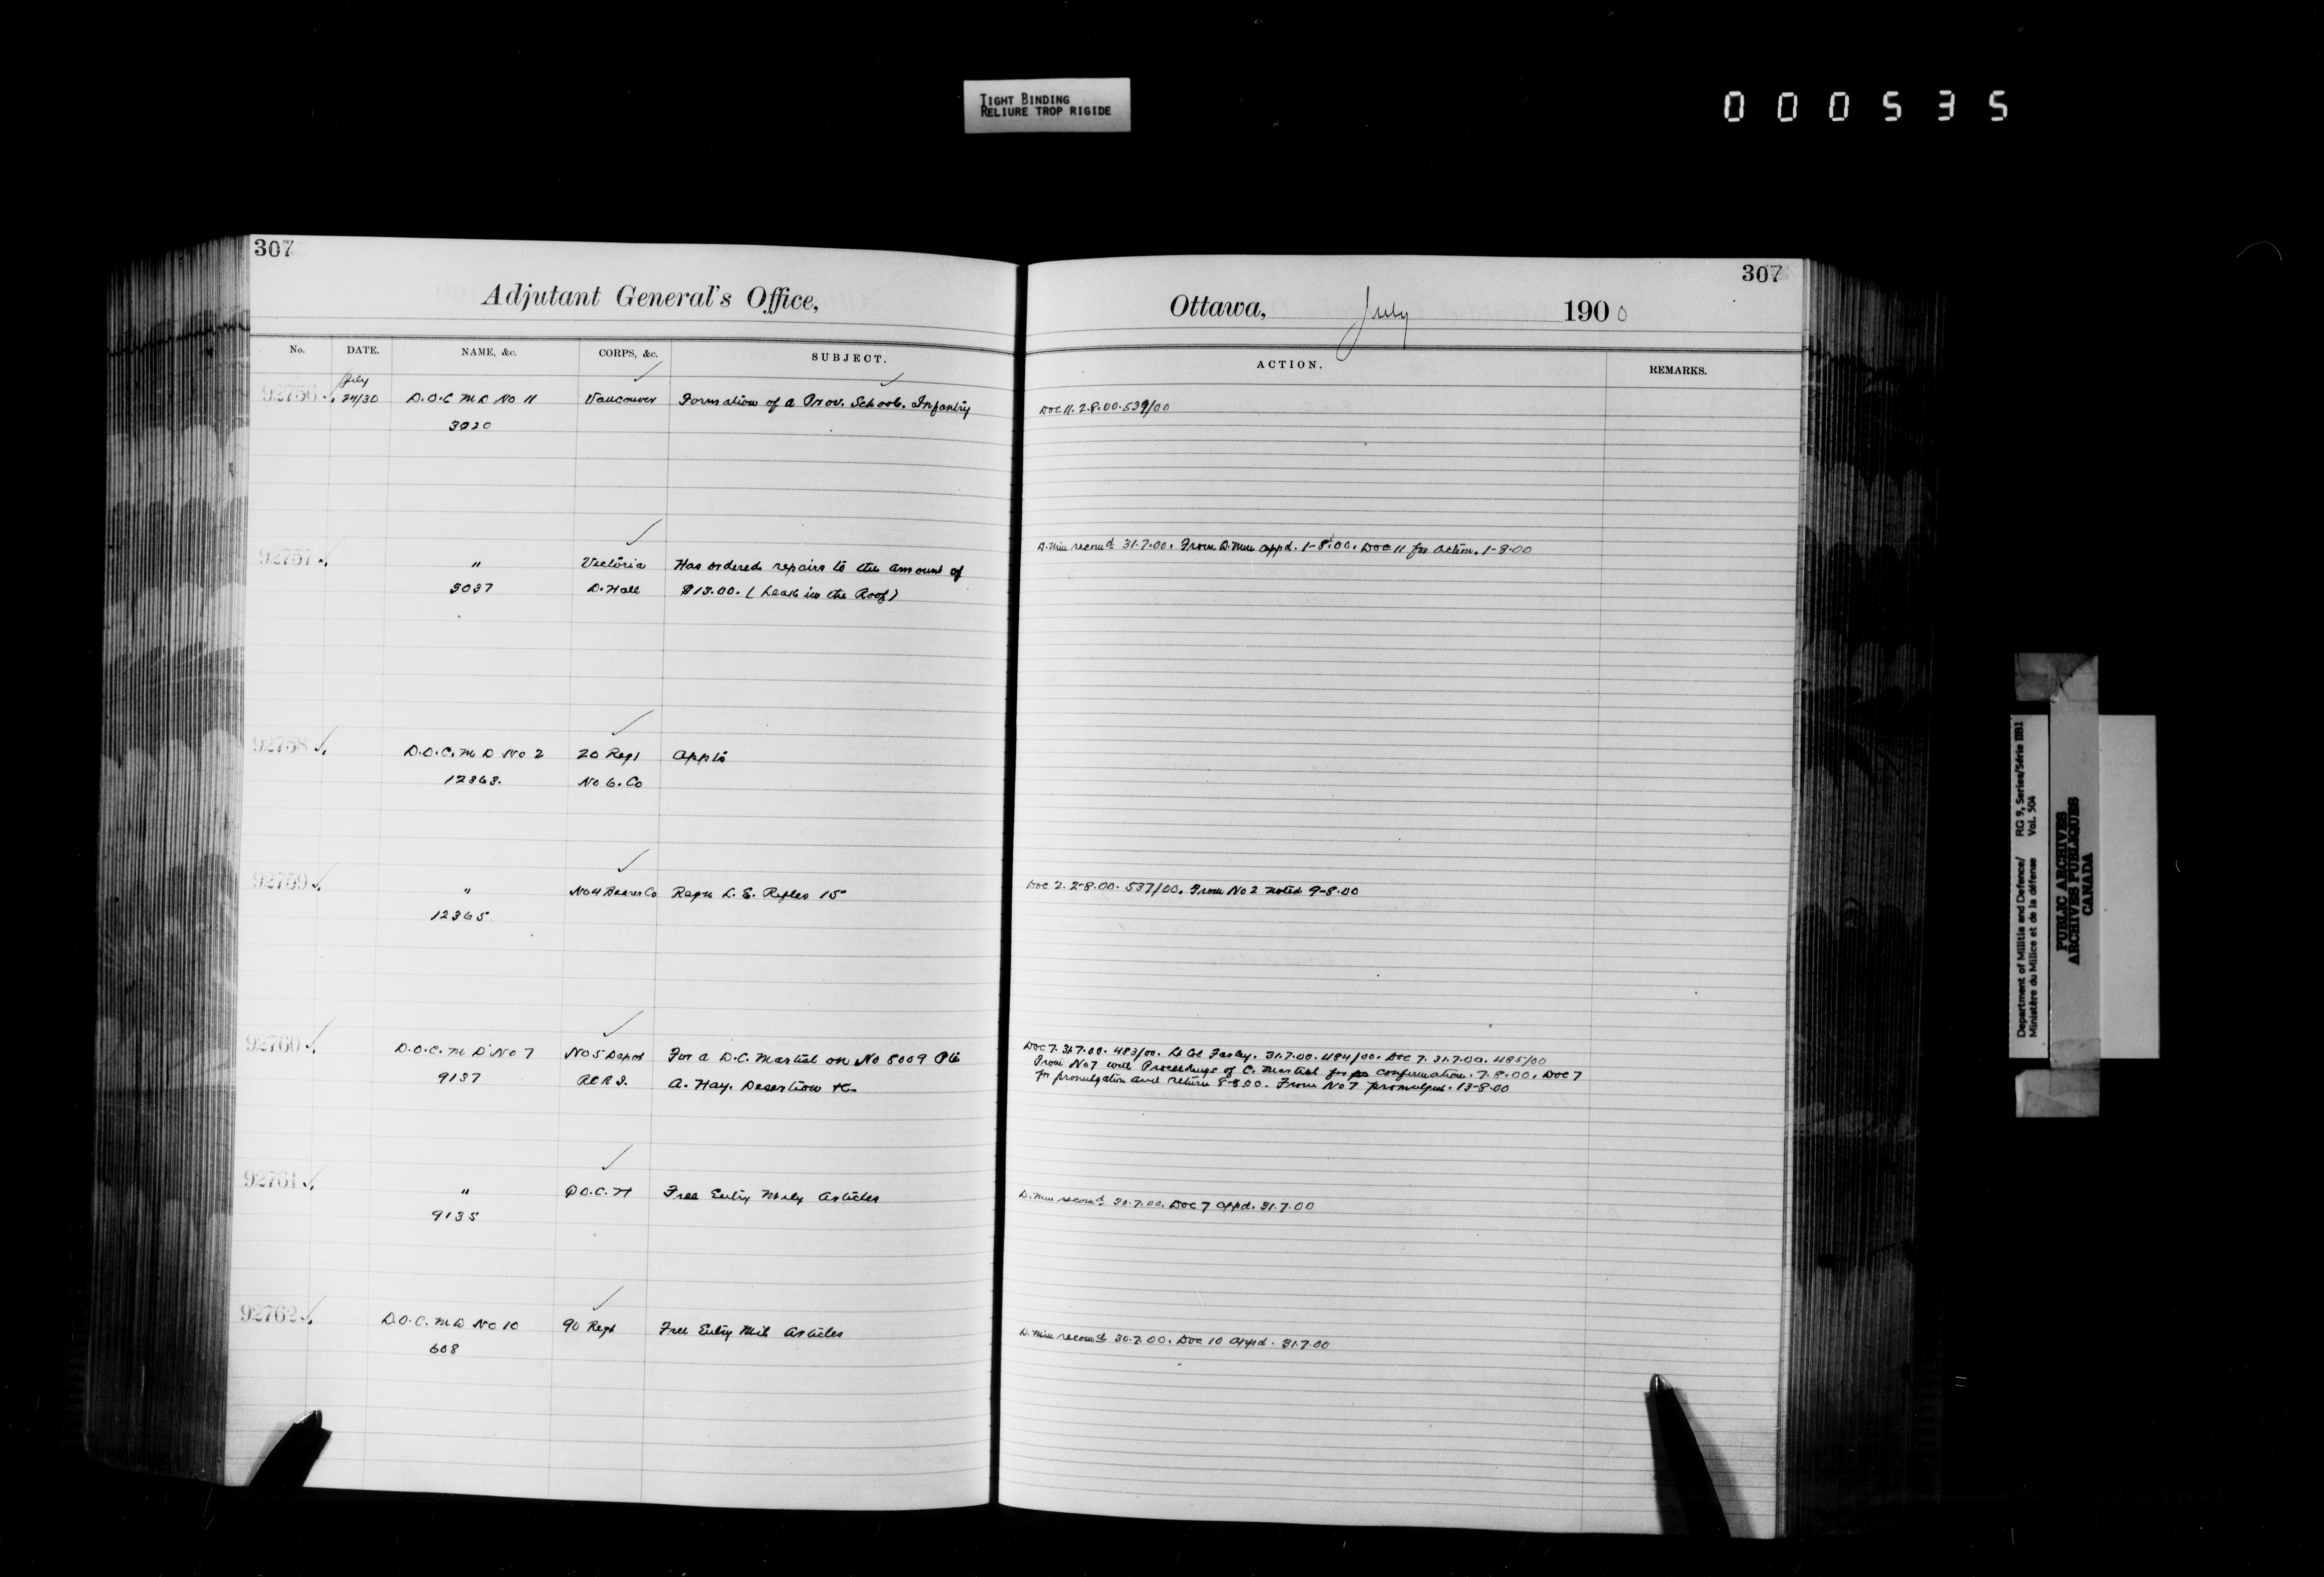 TIGHT BINDING
RELIURE TROP RIGIDE
000535
307
Adjutant General's Office,
No. DATE. NAME, &c. CORPS, &c. SUBJECT.
July
92756 24/30 D.O.C M D No 11 Vancouver Formation of a Prov. School. Infantry
3020
92757 " Victoria Has ordered repairs to the amount of
3037 D. Hall $13.00. (Leak in the Roof)
92758 D.O.C. M D No 2 20 Regt Appts
12363. No 6. Co
92759 " No 4 Bearer Co Reqn L. E. Rifles 15
12365
92760 D.O.C. M D No 7 No 5 Depot For a D.C. Martial on No 8009 Pte
9137 R.C.R.I. A. Hay. Desertion &c
92761 " D.O.C. 7 Free Entry Mily Articles
9135
92762 D.O.C. M D No 10 90 Regt Free Entry Mil Articles
608
307
Ottawa, July 1900
ACTION. REMARKS.
DOC 11. 2.8.00. 539/00
D. Min recomd 31.7.00. From D. Min appd. 1-8.00. DOC 11 for action. 1-8-00
DOC 2. 2-8.00. 537/00. From No 2 noted 9-8.00
DOC 7. 31.7.00. 483/00. Lt Col 31.7.00. 484/00. DOC 7. 31.7.00. 485/00
From No 7 with Proceedings of C. Martial for confirmation. 7.8.00. DOC 7
for promulgation and return 8-8.00. From No 7 promulgated. 13-8.00
D. Min recomd 30.7.00. DOC 7 appd. 31.7.00
D. Min recomd 30.7.00. DOC 10 appd. 31.7.00
Department of Militia and Defence/ RG 9, Series/Série IIB1
Ministère du Milice et de la défense Vol. 504
PUBLIC ARCHIVES
ARCHIVES PUBLIQUES
CANADA